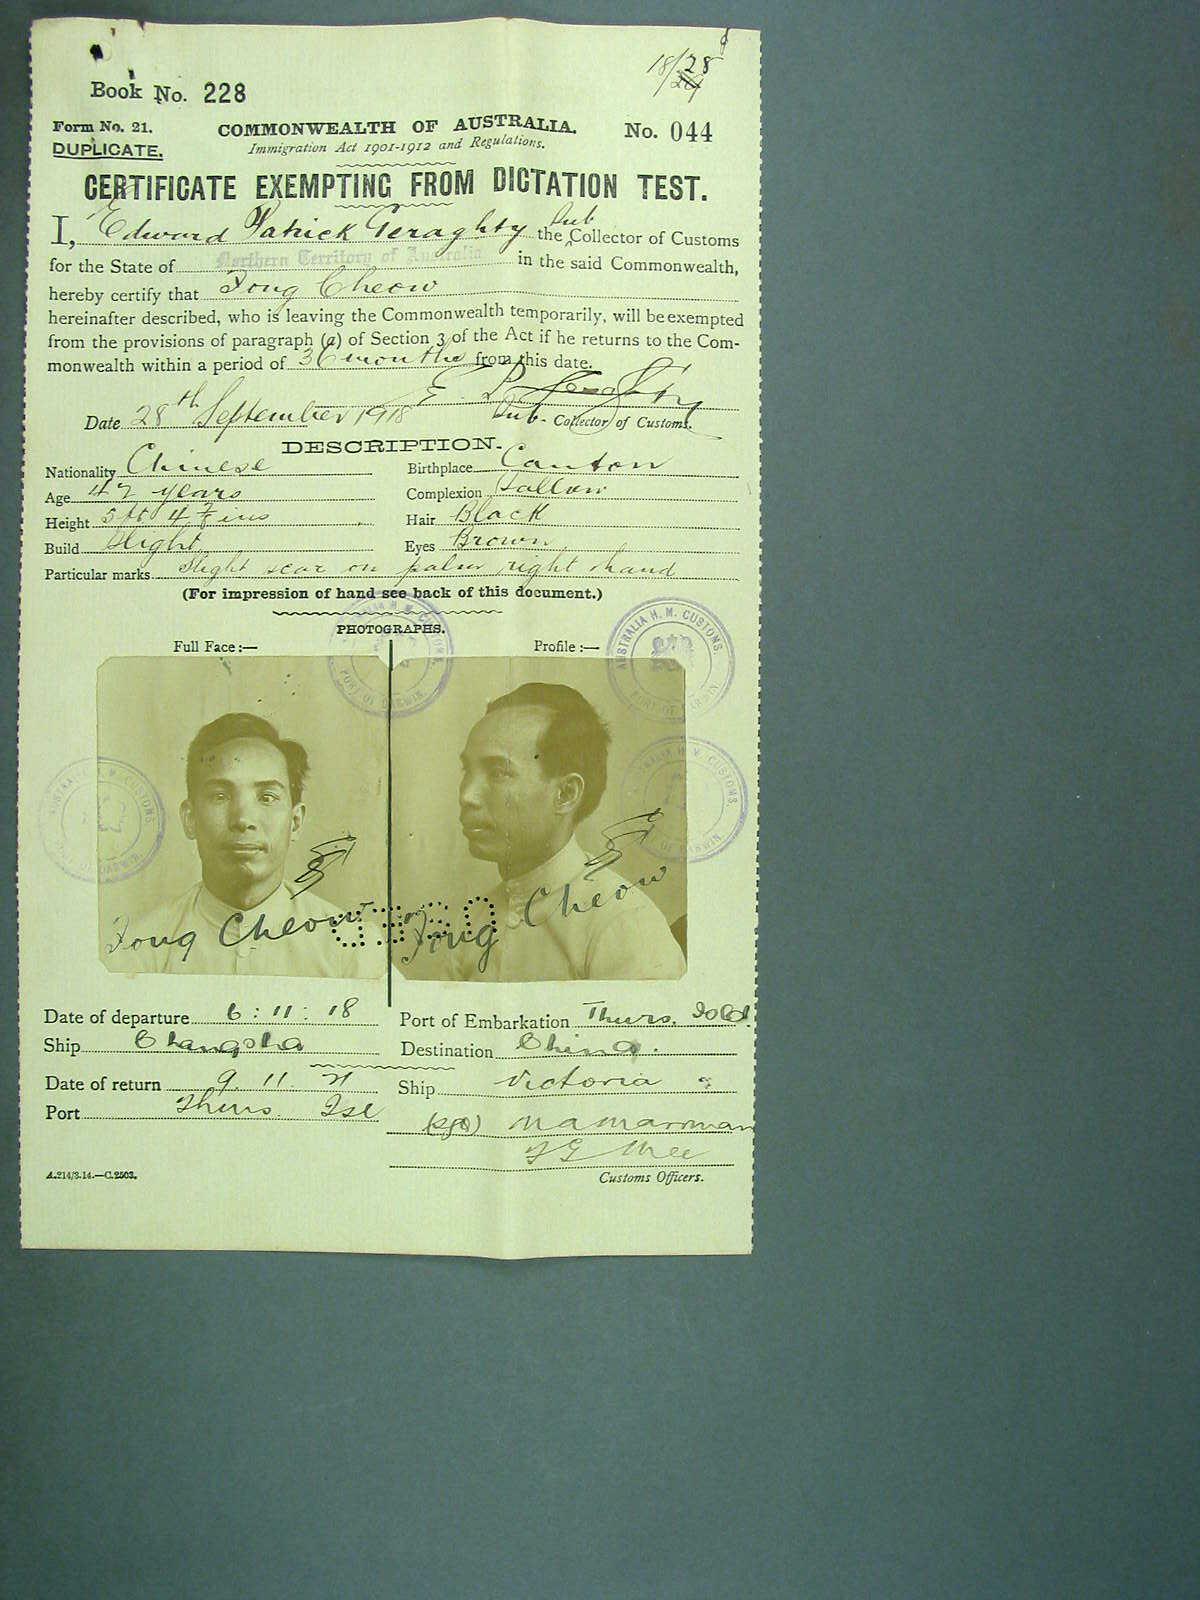 18/28
Book No. 228
Form No. 21.
DUPLICATE.
COMMONWEALTH OF AUSTRALIA.
Immigration Act 1901-1912 and Regulations.
No. 044
CERTIFICATE EXEMPTING FROM DICTATION TEST.
I, Edward Patrick Geraghty the Sub Collector of Customs
for the State of Northern Territory of Australia in the said Commonwealth,
hereby certify that Fong Cheow
hereinafter described, who is leaving the Commonwealth temporarily, will be exempted
from the provisions of paragraph (a) of Section 3 of the Act if he returns to the Com-
monwealth within a period of 36 months from this date.
E. P. Geraghty
Date 28th September 1918 Sub- Collector of Customs.
DESCRIPTION.
Nationality Chinese Birthplace Canton
Age 42 years Complexion Sallow
Height 5 ft 4 7/8 ins Hair Black
Build Slight Eyes Brown
Particular marks Slight scar on palm right hand
(For impression of hand see back of this document.)
PHOTOGRAPHS.
Full Face:— Profile:—
AUSTRALIA H. M. CUSTOMS.
PORT OF DARWIN
AUSTRALIA H. M. CUSTOMS.
PORT OF DARWIN
AUSTRALIA H. M. CUSTOMS.
PORT OF DARWIN
AUSTRALIA H. M. CUSTOMS.
PORT OF DARWIN
Fong Cheow Fong Cheow
Date of departure 6:11:18 Port of Embarkation Thurs. Isld.
Ship Changsha Destination China.
Date of return 9. 11. 21 Ship Victoria
Port Thurs Isl
(sgd)
Customs Officers.
A.214/3.14.—C.2503.